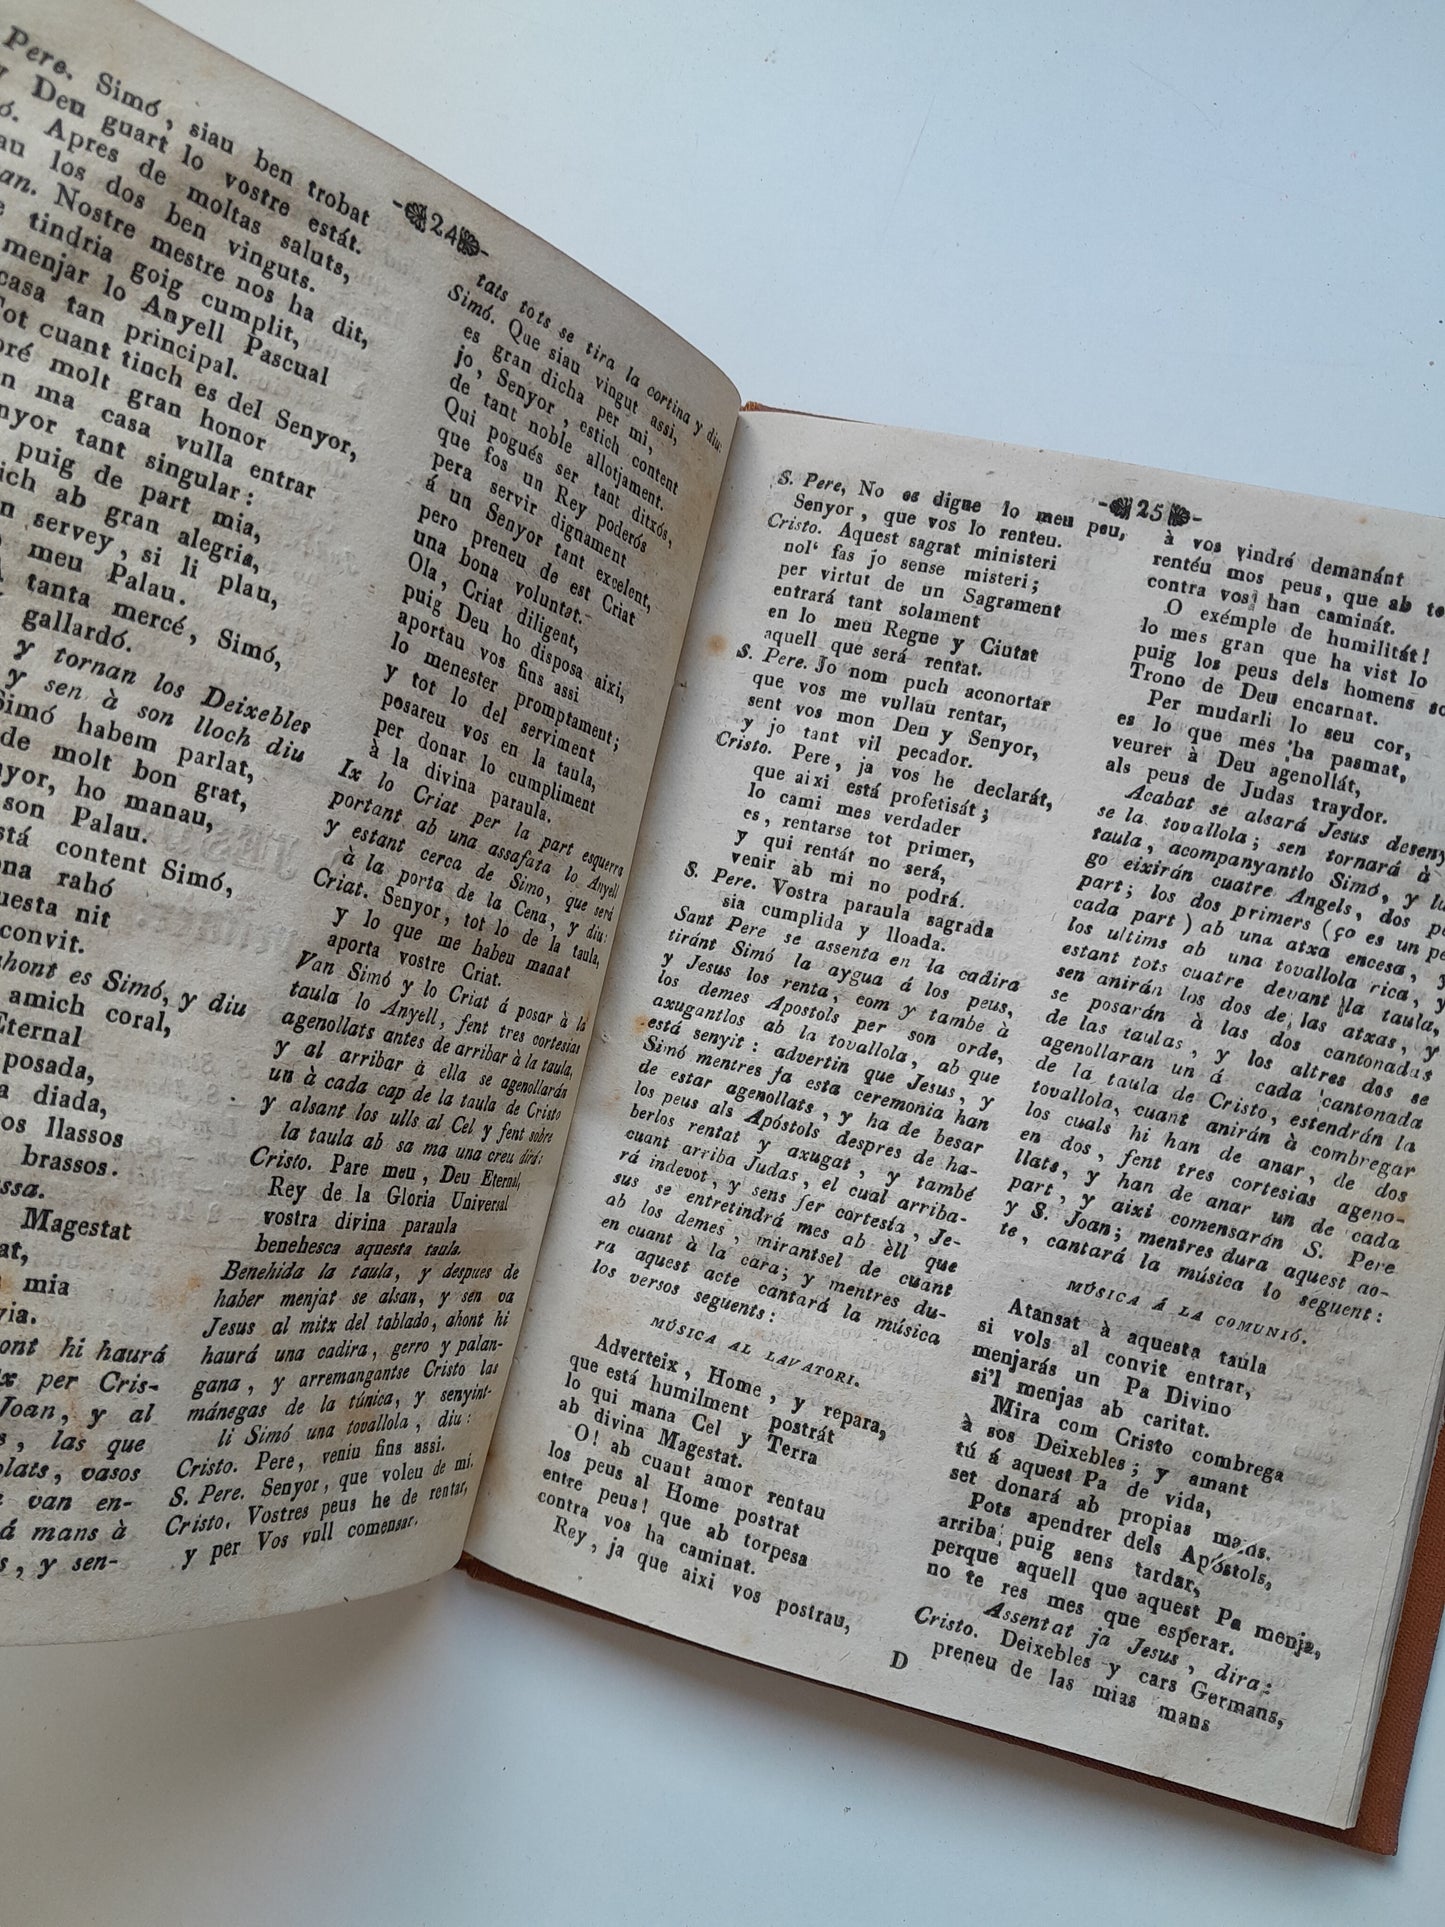 -24-
Pere. Simó, siau ben trobat
Deu guart lo vostre estát.
Apres de moltas saluts,
los dos ben vinguts.
Nostre mestre nos ha dit,
tindria goig cumplit,
menjar lo Anyell Pascual
casa tan principal.
cuant tinch es del Senyor,
molt gran honor
ma casa vulla entrar
tant singular:
puig de part mia,
ab gran alegria,
servey, si li plau,
meu Palau.
tanta mercé, Simó,
gallardó.
y tornan los Deixebles
y sen à son lloch diu
Simó habem parlat,
de molt bon grat,
ho manau,
son Palau.
content Simó,
rahó
nit
convit.
ahont es Simó, y diu
amich coral,
Eternal
posada,
diada,
llassos
brassos.
Magestat
mia
hi haurá
per Cris-
Joan, y al
las que
vasos
van en-
mans à
y sen-
tats tots se tira la cortina y diu:
Simó. Que siau vingut assi,
es gran dicha per mi,
jo, Senyor, estich content
de tant noble allotjament.
Qui pogués ser tant ditxós,
que fos un Rey poderós
pera servir dignament
á un Senyor tant excelent,
pero preneu de est Criat
una bona voluntat.
Ola, Criat diligent,
puig Deu ho disposa aixi,
aportau vos fins assi
lo menester promptament;
y tot lo del serviment
posareu vos en la taula,
per donar lo cumpliment
à la divina paraula.
Ix lo Criat per la part esquerra
portant ab una assafata lo Anyell
y estant cerca de Simo, que será
à la porta de la Cena, y diu:
Criat. Senyor, tot lo de la taula,
y lo que me habeu manat
aporta vostre Criat.
Van Simó y lo Criat á posar à la
taula lo Anyell, fent tres cortesias
agenollats antes de arribar à la taula,
y al arribar à ella se agenollarán
un à cada cap de la taula de Cristo
y alsant los ulls al Cel y fent sobre
la taula ab sa ma una creu dirá:
Cristo. Pare meu, Deu Eternal,
Rey de la Gloria Universal
vostra divina paraula
benehesca aquesta taula.
Benehida la taula, y despues de
haber menjat se alsan, y sen va
Jesus al mitx del tablado, ahont hi
haurá una cadira, gerro y palan-
gana, y arremangantse Cristo las
mánegas de la túnica, y senyint-
li Simó una tovallola, diu:
Cristo. Pere, veniu fins assi.
S. Pere. Senyor, que voleu de mi.
Cristo. Vostres peus he de rentar,
y per Vos vull comensar.
-25-
S. Pere, No es digne lo meu peu,
Senyor, que vos lo renteu.
Cristo. Aquest sagrat ministeri
nol' fas jo sense misteri;
per virtut de un Sagrament
entrará tant solament
en lo meu Regne y Ciutat
aquell que será rentat.
S. Pere. Jo nom puch aconortar
que vos me vullau rentar,
sent vos mon Deu y Senyor,
y jo tant vil pecador.
Cristo. Pere, ja vos he declarát,
que aixi está profetisát;
lo cami mes verdader
es, rentarse tot primer,
y qui rentát no será,
venir ab mi no podrá.
S. Pere. Vostra paraula sagrada
sia cumplida y lloada.
Sant Pere se assenta en la cadira
tiránt Simó la aygua á los peus,
y Jesus los renta, com y tambe à
los demes Apostols per son orde,
axugantlos ab la tovallola, ab que
está senyit: advertin que Jesus, y
Simó mentres fa esta ceremonia han
de estar agenollats, y ha de besar
los peus als Apóstols despres de ha-
berlos rentat y axugat, y també
cuant arriba Judas, el cual arriba-
rá indevot, y sens fer cortesía, Je-
sus se entretindrá mes ab èll que
ab los demes, mirantsel de cuant
en cuant à la cara; y mentres du-
ra aquest acte cantará la música
los versos seguents:
MÚSICA AL LAVATORI.
Adverteix, Home, y repara,
que está humilment postrát
lo qui mana Cel y Terra
ab divina Magestat.
O! ab cuant amor rentau
los peus al Home postrat
entre peus! que ab torpesa
contra vos ha caminat.
Rey, ja que aixi vos postrau,
à vos vindré demanánt
rentéu mos peus, que ab
contra vos han caminát.
O exémple de humilitát!
lo mes gran que ha vist lo
puig los peus dels homens
Trono de Deu encarnat.
Per mudarli lo seu cor,
es lo que mes ha pasmat,
veurer à Deu agenollát,
als peus de Judas traydor.
Acabat se alsará Jesus
se la tovallola; sen tornará à
taula, acompanyantlo Simó, y
go eixirán cuatre Angels, dos
part; los dos primers (ço es un
cada part) ab una atxa encesa,
los ultims ab una tovallola rica, y
estant tots cuatre devant la taula,
sen anirán los dos de las atxas, y
se posarán à las dos cantonadas
de las taulas, y los altres dos se
agenollaran un á cada cantonada
de la taula de Cristo, estendrán la
tovallola, cuant anirán à combregar
los cuals hi han de anar, de dos
en dos, fent tres cortesias ageno-
llats, y han de anar un de cada
part, y aixi comensarán S. Pere
y S. Joan; mentres dura aquest ac-
te, cantará la música lo seguent:
MÚSICA Á LA COMUNIÓ.
Atansat à aquesta taula
si vols al convit entrar,
menjarás un Pa Divino
si'l menjas ab caritat.
Mira com Cristo combrega
à sos Deixebles; y amant
tú á aquest Pa de vida,
set donará ab propias mans.
Pots apendrer dels Apóstols,
arriba, puig sens tardar,
perque aquell que aquest Pa menja,
no te res mes que esperar.
Assentat ja Jesus, dira:
Cristo. Deixebles y cars Germans,
preneu de las mias mans
D